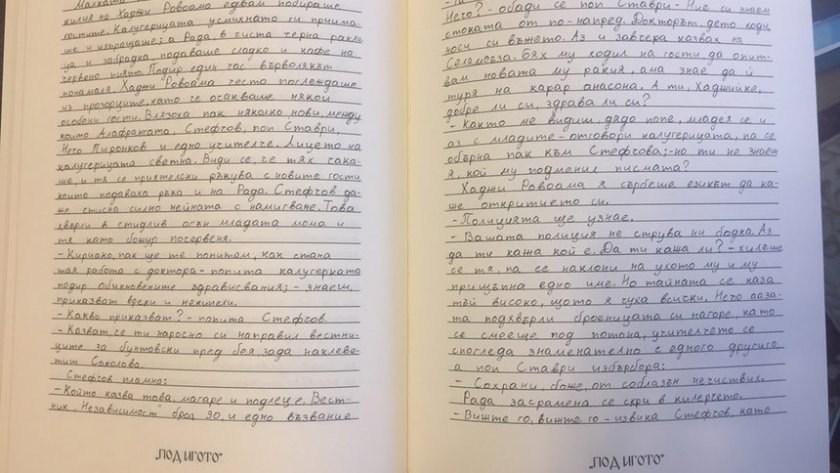 Малката
килия на Хаджи Ровоама едвам побираше
гостите. Калугерицата усмихнато ги приема-
ше и изпращаше; а Рада, в чиста черна рокли-
ца и забрадка, подаваше сладко и кафе на
червено пиято. Подир един час върволякът
понамаля. Хаджи Ровоама често поглеждаше
из прозорците, като че очакваше някои
особени гости. Влязоха пак няколко нови, между
които Алафрангата, Стефчов, поп Ставри,
Нечо Пиронков и едно учителче. Лицето на
калугерицата светна. Види се, че тях чака-
ше, и тя се приятелски ръкува с новите гости
които подаваха ръка и на Рада. Стефчов да-
же стисна силно нейната с намигване. Това
хвърли в стидлив огън младата мома и
тя като божур почервеня.
- Кириако, пак ще те попитам, как стана
тая работа с доктора - попита калугерката
подир обикновените здрависвания; - знаеш,
приказват врели и некипели.
- Какво приказват? - попита Стефчов.
- Казват, че ти наросно си направил вестни-
ците за бунтовски пред бея, зада наклеве-
тиш Соколова.
Стефчов пламна:
- Който казва това, магаре и подлец е. Вест-
ник „Независимост" брой 30, и едно възвание
„ПОД ИГОТО"
Него? - обади се поп Ставри - Ние си знаем
стоката от по-напред. Докторът, дето ходи,
носи си въжето. Аз и завчера казвах на
Селямсъза. Бях му ходил на гости, да опит-
вам новата му ракия, ама знае да ѝ
туря на карар анасона. А ти, Хаджийке,
добре ли си, здрава ли си?
- Както ме видиш, дядо попе, младея се и
аз с младите - отговори калугерицата, па се
обърна пак към Стефчова; - но ти не знаеш
я, кой му подменил писмата?
Хаджи Ровоама я сърбеше езикът да ка-
же откритието си.
- Полицията ще узнае.
- Вашата полиция не струва ни бодка. Аз
да ти кажа кой е. Да ти кажа ли? - хилеше
се тя, па се наклони на ухото му и му
пришъпна едно име. Но тайната се каза
тъй високо, щото я чуха всички. Нечо паза-
та подхвърли броеницата си нагоре, като
се смееше под потона, учителчето се
спогледа знаменателно с едного другиго,
а поп Ставри избърбора:
- Сохрани, боже, от соблазън нечистих.
Рада засрамена се скри в килерсето.
- Вижте го, вижте го - извика Стефчов, като
„ПОД ИГОТО"